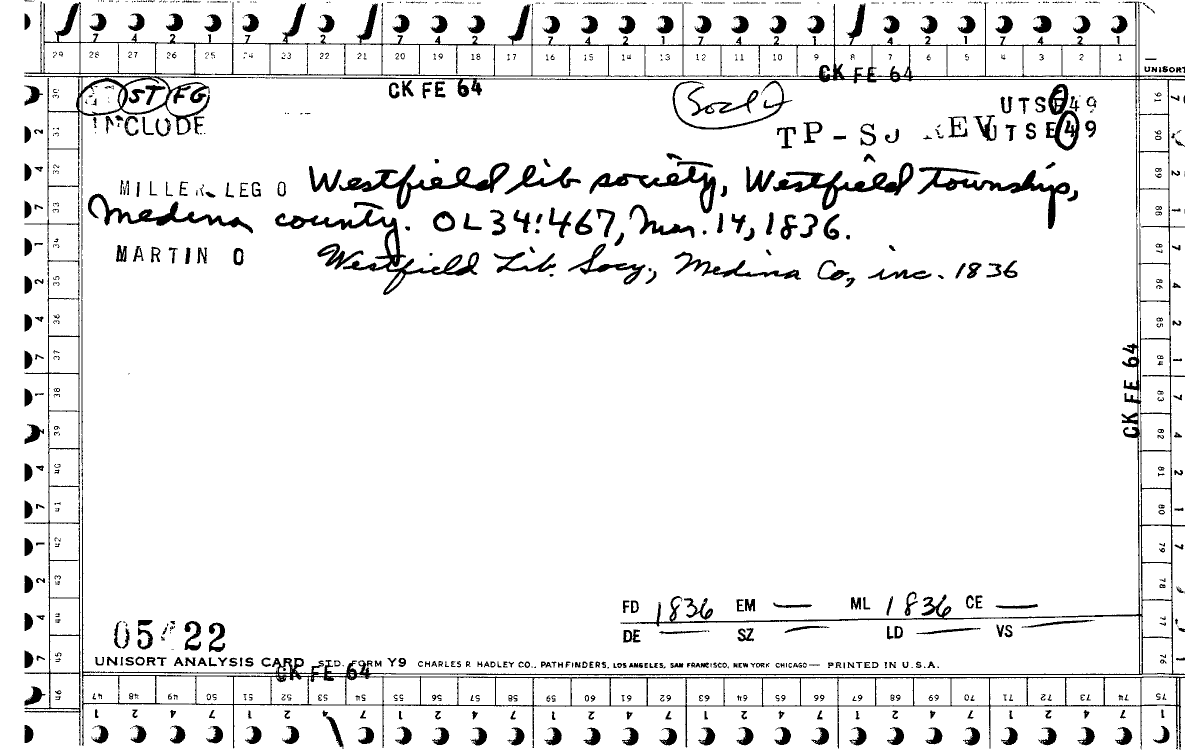 7 4 2 1 7 4 2 1 7 4 2 1 7 4 2 1 7 4 2 1 7 4 2 1
29 28 27 26 25 24 23 22 21 20 19 18 17 16 15 14 13 12 11 10 9 8 7 6 5 4 3 2 1
CK FE 64
UNISORT
ST FG CK FE 64 UTSE49
INCLODE TP-SJ REV UTSE49
MILLER LEG O Westfield lib society, Westfield township,
Medina county. OL34:467, Mar. 14, 1836.
MARTIN O Westfield Lib. Socy., Medina Co, inc. 1836
CK FE 64
FD 1836 EM — ML 1836 CE —
DE — SZ — LD — VS —
22
UNISORT ANALYSIS CARD STD. FORM Y9 CHARLES R. HADLEY CO., PATHFINDERS, LOS ANGELES, SAN FRANCISCO, NEW YORK CHICAGO — PRINTED IN U.S.A.
CK FE 64
46 47 48 49 50 51 52 53 54 55 56 57 58 59 60 61 62 63 64 65 66 67 68 69 70 71 72 73 74 75